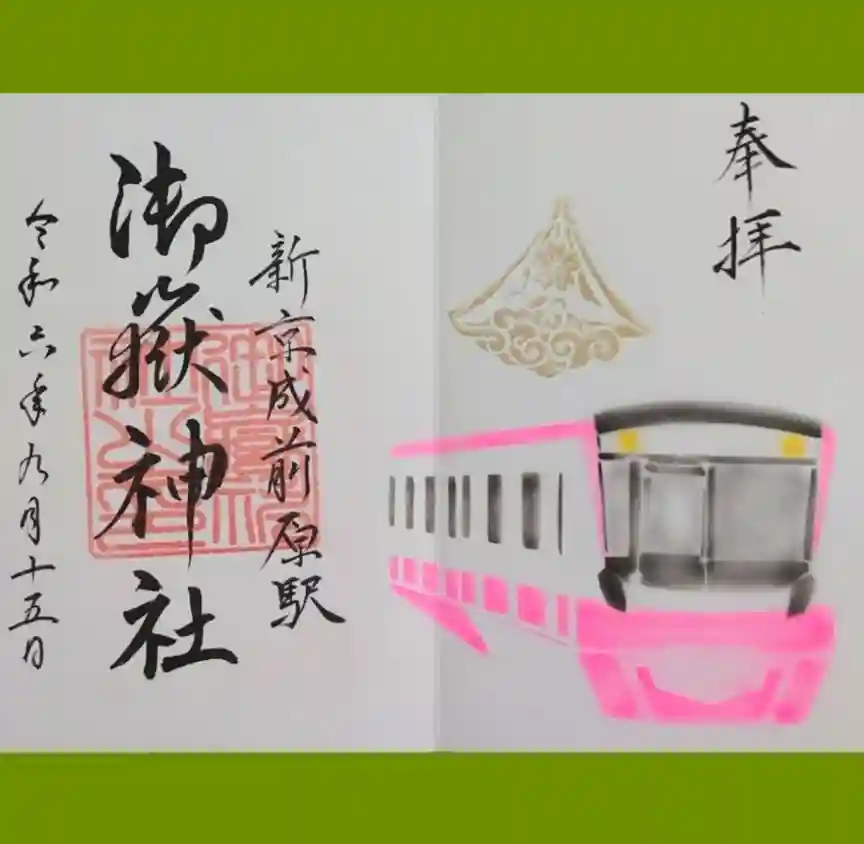 奉拝
新京成前原駅
御嶽神社
令和六年九月十五日